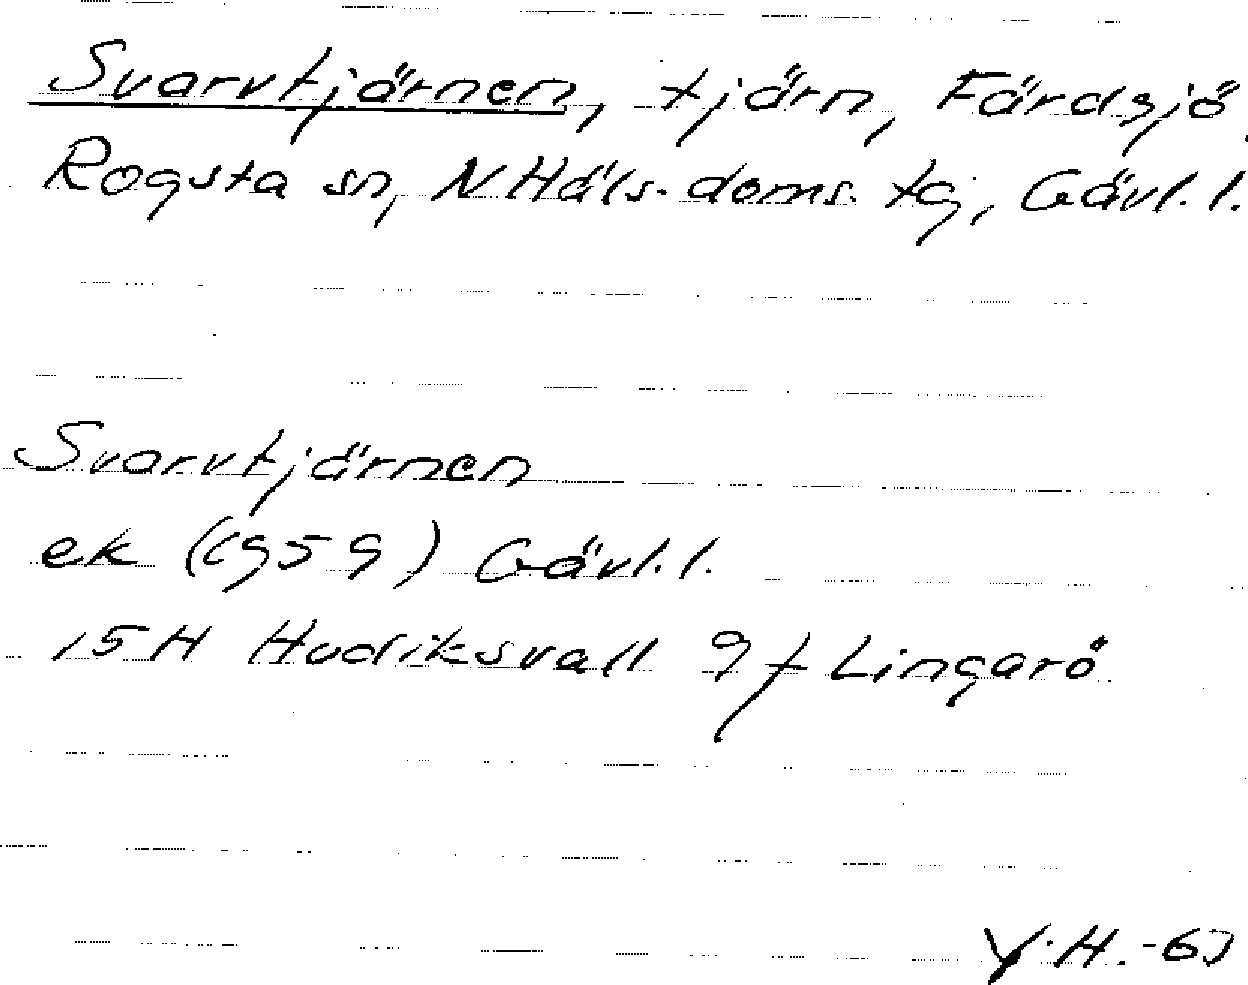 Svarvtjärnen, tjärn, Färdsjö
Rogsta sn, N Häls. doms. tg, Gävl. l.
Svarvtjärnen
ek (1959) Gävl. l.
15H Hudiksvall 9f Lingarö
Y.H.-63